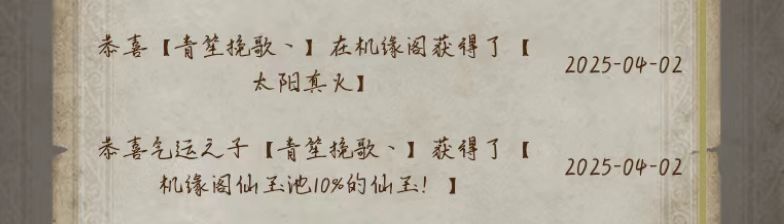 恭喜【青笙挽歌丶】在机缘阁获得了【
太阳真火】
2025-04-02
恭喜气运之子【青笙挽歌丶】获得了【
机缘阁仙玉池10%的仙玉!】
2025-04-02